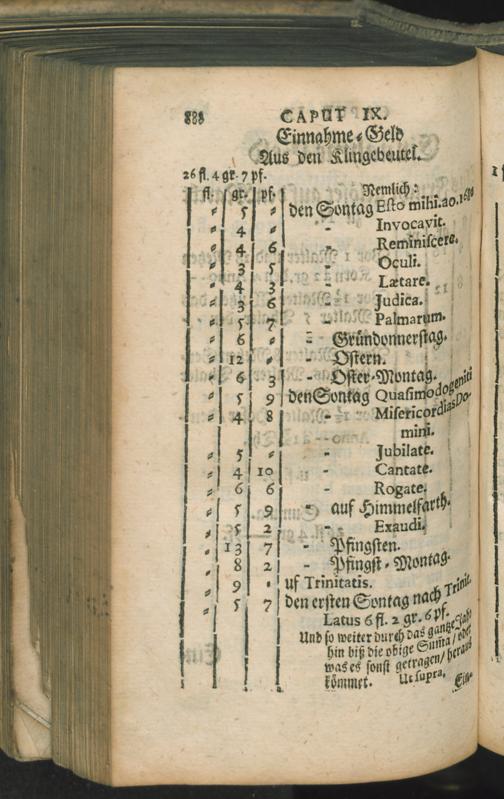 888 CAPUT IX.
Einnahme-Geld
Aus den Klingebeutel.
26 fl. 4 gr. 7 pf.
fl. gr. pf. Nemlich:
" 5 " den Sontag Esto mihi. ao. 1680
" 4 " - Invocavit.
" 4 6 - Reminiscere.
" 3 5 - Oculi.
" 4 3 - Lætare.
" 3 6 - Judica.
" 5 7 - Palmarum.
" 6 " - Gründonnerstag.
" 12 " - Ostern.
" 6 3 - Oster-Montag.
" 5 9 den Sontag Quasimodogeniti
" 4 8 - Misericordias Do-
mini.
" 5 " - Jubilate.
" 4 10 - Cantate.
" 6 6 - Rogate.
" 5 9 - auf Himmelfarth.
" 5 2 - Exaudi.
" 13 7 - Pfingsten.
" 8 2 - Pfingst-Montag.
" 9 " uf Trinitatis.
" 5 7 den ersten Sontag nach Trinit.
Latus 6 fl. 2 gr. 6 pf.
Und so weiter durch das gantze Jahr
hin biß die obige Sum̃a / oder
was es sonst getragen / heraus
kömmet. Ut supra.
Ein-